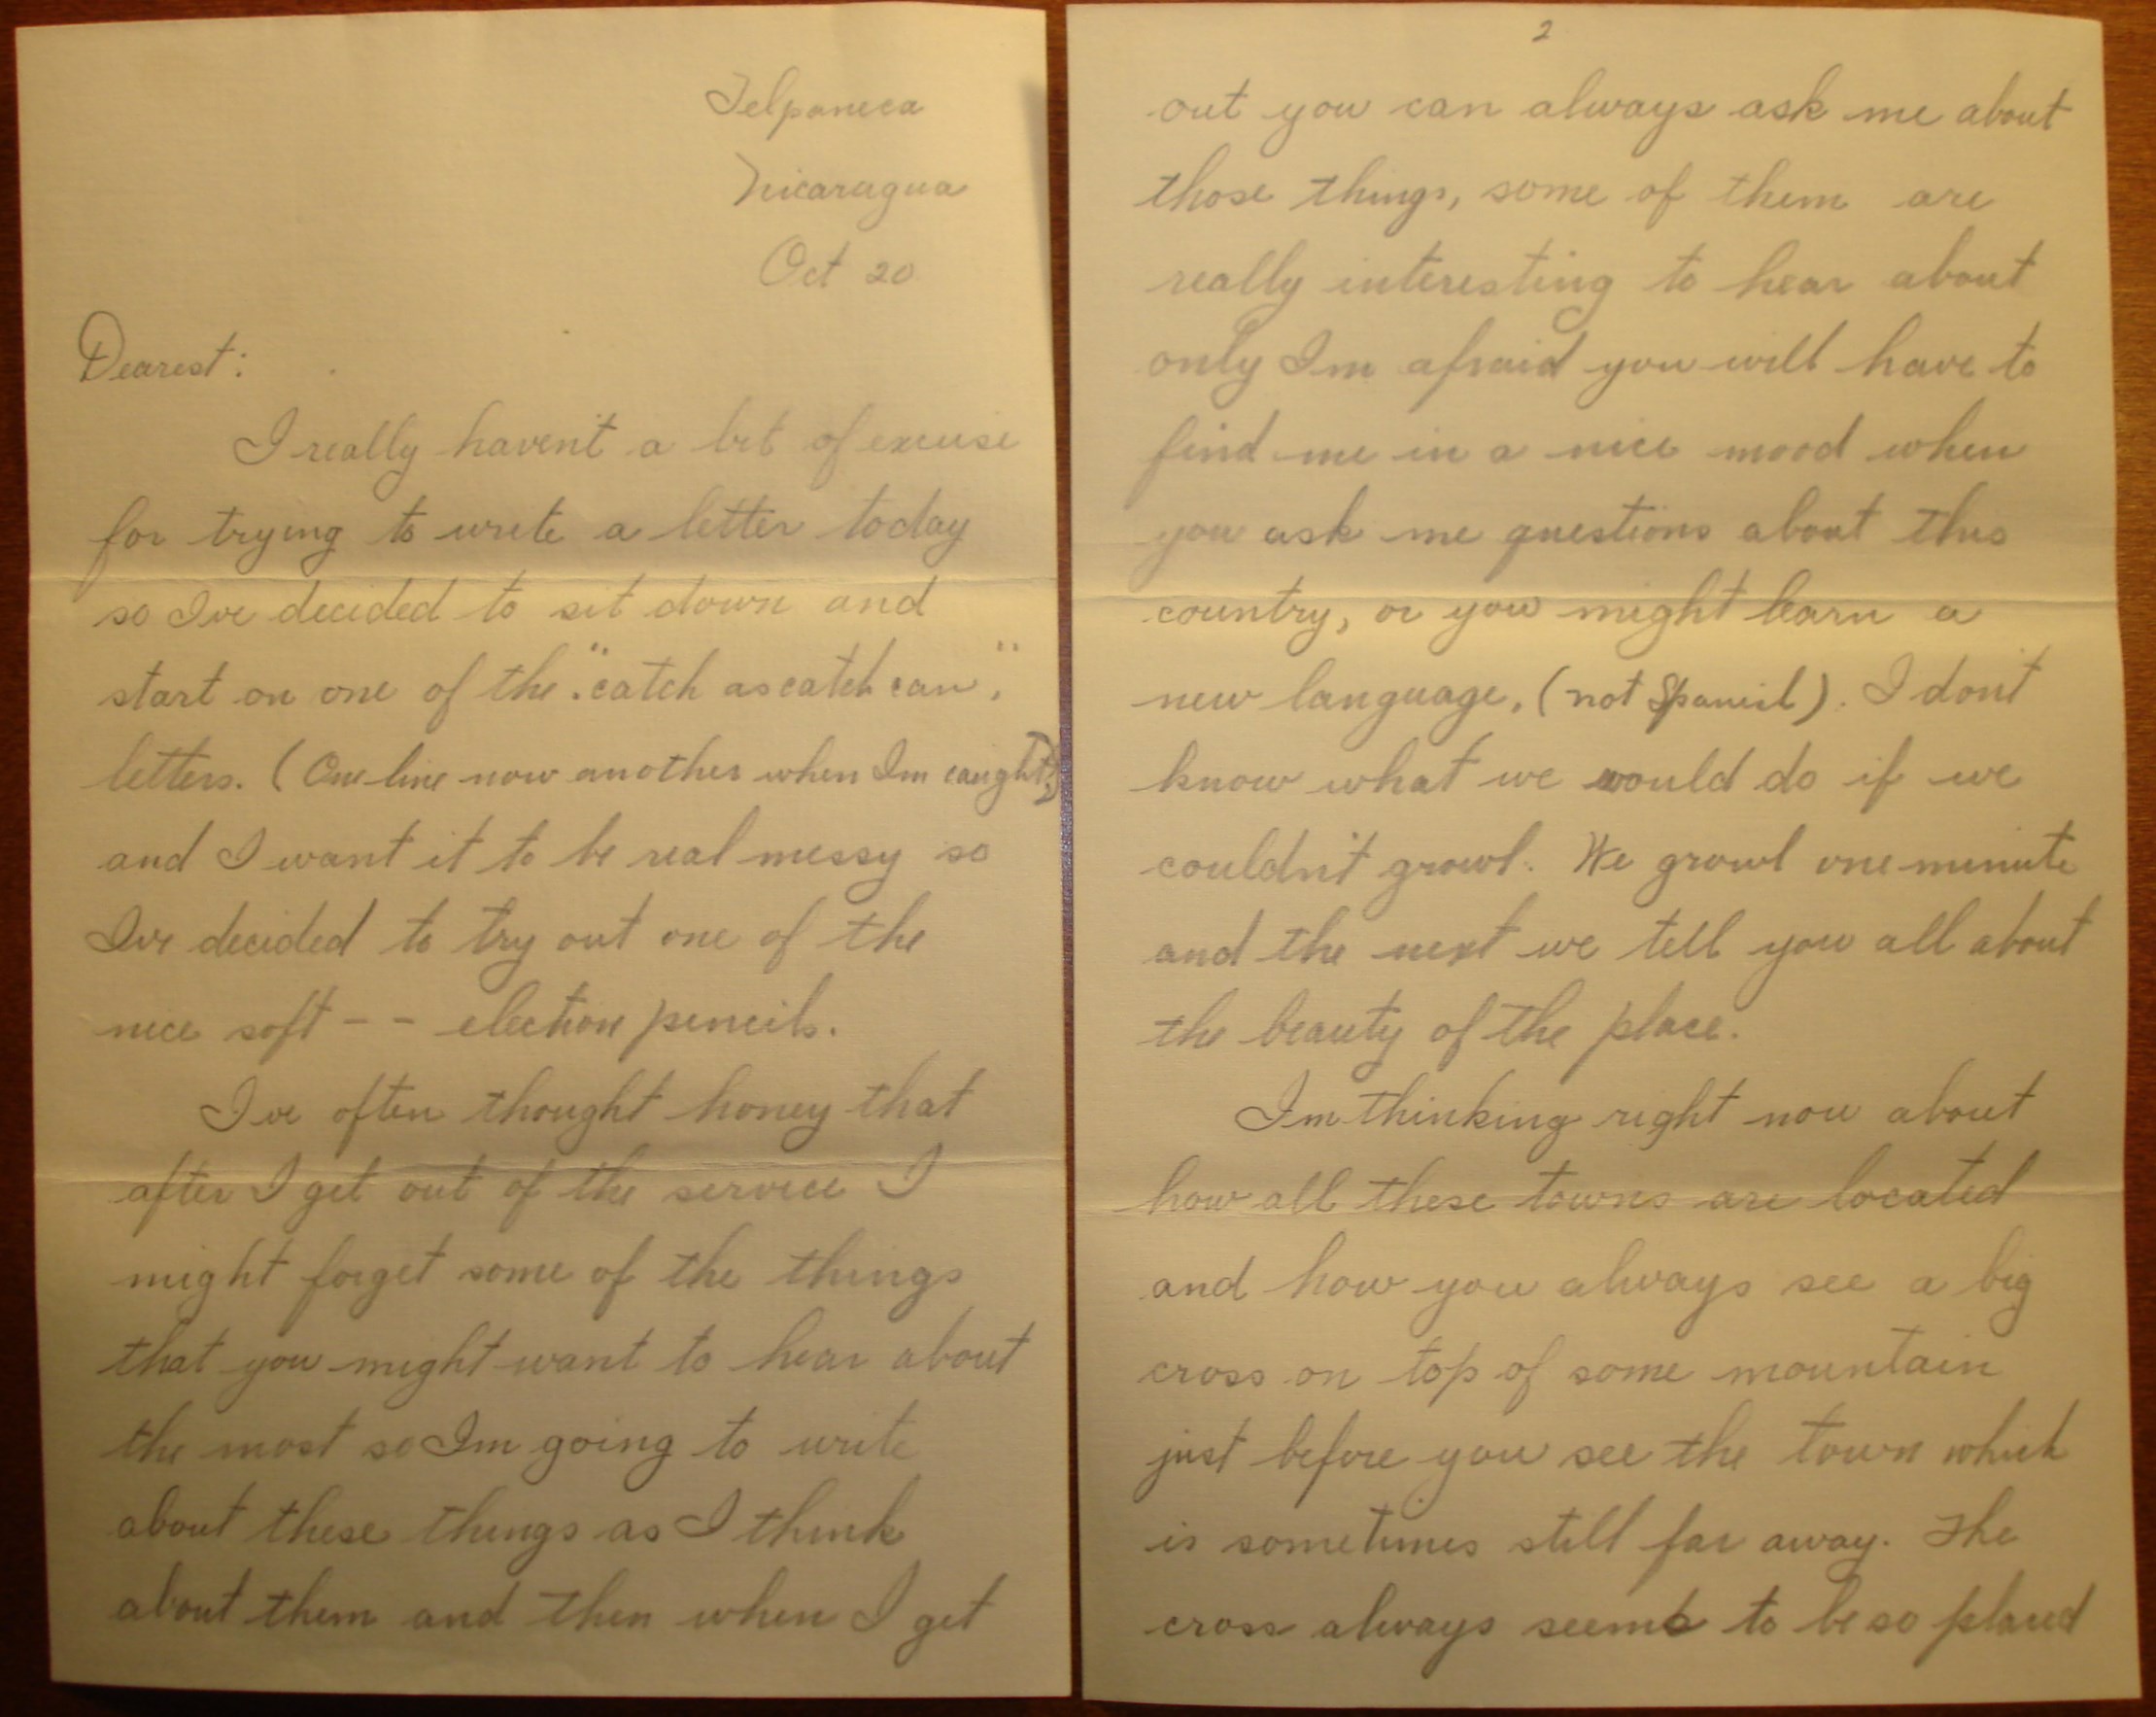 Telpaneca
Nicaragua
Oct 20
Dearest:
I really haven't a bit of excuse
for trying to write a letter today
so Ive decided to sit down and
start on one of the "catch as catch can"
letters. (One line now another when Im caught)
and I want it to be real messy so
Ive decided to try out one of the
nice soft -- election pencils.
Ive often thought honey that
after I get out of the service I
might forget some of the things
that you might want to hear about
the most so Im going to write
about these things as I think
about them and then when I get
2
out you can always ask me about
those things, some of them are
really interesting to hear about
only Im afraid you will have to
find me in a nice mood when
you ask me questions about this
country, or you might learn a
new language, (not Spanish). I don't
know what we would do if we
couldn't growl. We growl one minute
and the next we tell you all about
the beauty of the place.
Im thinking right now about
how all these towns are located
and how you always see a big
cross on top of some mountain
just before you see the town which
is sometimes still far away. The
cross always seems to be so placed